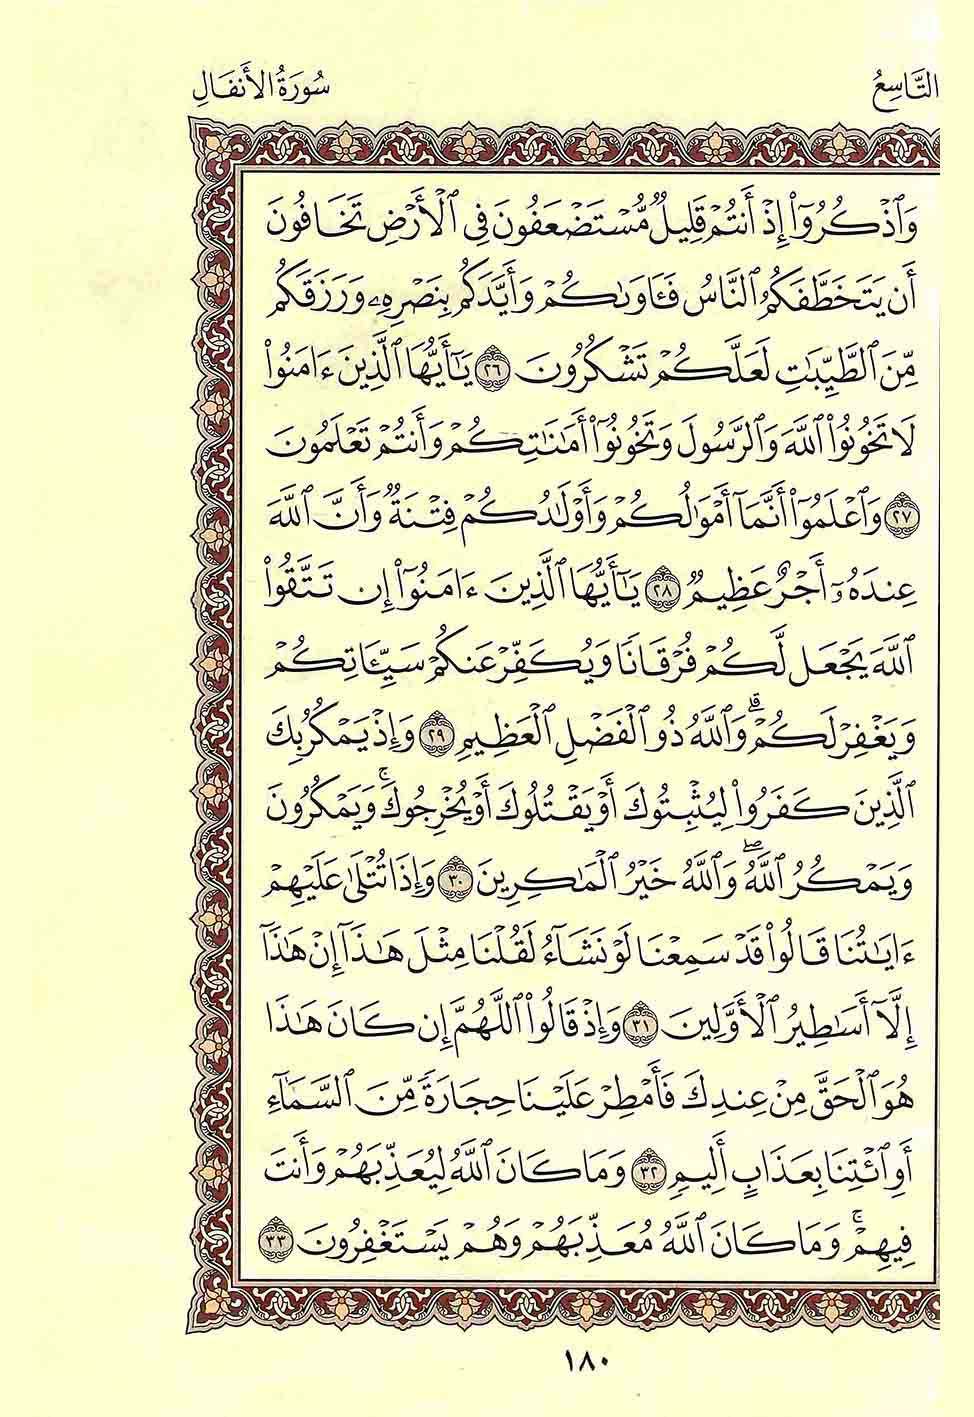 التَّاسِعُ
سُورَةُ الأَنفَالِ
وَٱذۡكُرُوٓاْ إِذۡ أَنتُمۡ قَلِيلٞ مُّسۡتَضۡعَفُونَ فِي ٱلۡأَرۡضِ تَخَافُونَ
أَن يَتَخَطَّفَكُمُ ٱلنَّاسُ فَـَٔاوَىٰكُمۡ وَأَيَّدَكُم بِنَصۡرِهِۦ وَرَزَقَكُم
مِّنَ ٱلطَّيِّبَٰتِ لَعَلَّكُمۡ تَشۡكُرُونَ ٢٦ يَٰٓأَيُّهَا ٱلَّذِينَ ءَامَنُواْ
لَا تَخُونُواْ ٱللَّهَ وَٱلرَّسُولَ وَتَخُونُوٓاْ أَمَٰنَٰتِكُمۡ وَأَنتُمۡ تَعۡلَمُونَ
٢٧ وَٱعۡلَمُوٓاْ أَنَّمَآ أَمۡوَٰلُكُمۡ وَأَوۡلَٰدُكُمۡ فِتۡنَةٞ وَأَنَّ ٱللَّهَ
عِندَهُۥٓ أَجۡرٌ عَظِيمٞ ٢٨ يَٰٓأَيُّهَا ٱلَّذِينَ ءَامَنُوٓاْ إِن تَتَّقُواْ
ٱللَّهَ يَجۡعَل لَّكُمۡ فُرۡقَانٗا وَيُكَفِّرۡ عَنكُمۡ سَيِّـَٔاتِكُمۡ
وَيَغۡفِرۡ لَكُمۡۗ وَٱللَّهُ ذُو ٱلۡفَضۡلِ ٱلۡعَظِيمِ ٢٩ وَإِذۡ يَمۡكُرُ بِكَ
ٱلَّذِينَ كَفَرُواْ لِيُثۡبِتُوكَ أَوۡ يَقۡتُلُوكَ أَوۡ يُخۡرِجُوكَۚ وَيَمۡكُرُونَ
وَيَمۡكُرُ ٱللَّهُۖ وَٱللَّهُ خَيۡرُ ٱلۡمَٰكِرِينَ ٣٠ وَإِذَا تُتۡلَىٰ عَلَيۡهِمۡ
ءَايَٰتُنَا قَالُواْ قَدۡ سَمِعۡنَا لَوۡ نَشَآءُ لَقُلۡنَا مِثۡلَ هَٰذَآ إِنۡ هَٰذَآ
إِلَّآ أَسَٰطِيرُ ٱلۡأَوَّلِينَ ٣١ وَإِذۡ قَالُواْ ٱللَّهُمَّ إِن كَانَ هَٰذَا
هُوَ ٱلۡحَقَّ مِنۡ عِندِكَ فَأَمۡطِرۡ عَلَيۡنَا حِجَارَةٗ مِّنَ ٱلسَّمَآءِ
أَوِ ٱئۡتِنَا بِعَذَابٍ أَلِيمٖ ٣٢ وَمَا كَانَ ٱللَّهُ لِيُعَذِّبَهُمۡ وَأَنتَ
فِيهِمۡۚ وَمَا كَانَ ٱللَّهُ مُعَذِّبَهُمۡ وَهُمۡ يَسۡتَغۡفِرُونَ ٣٣
١٨٠